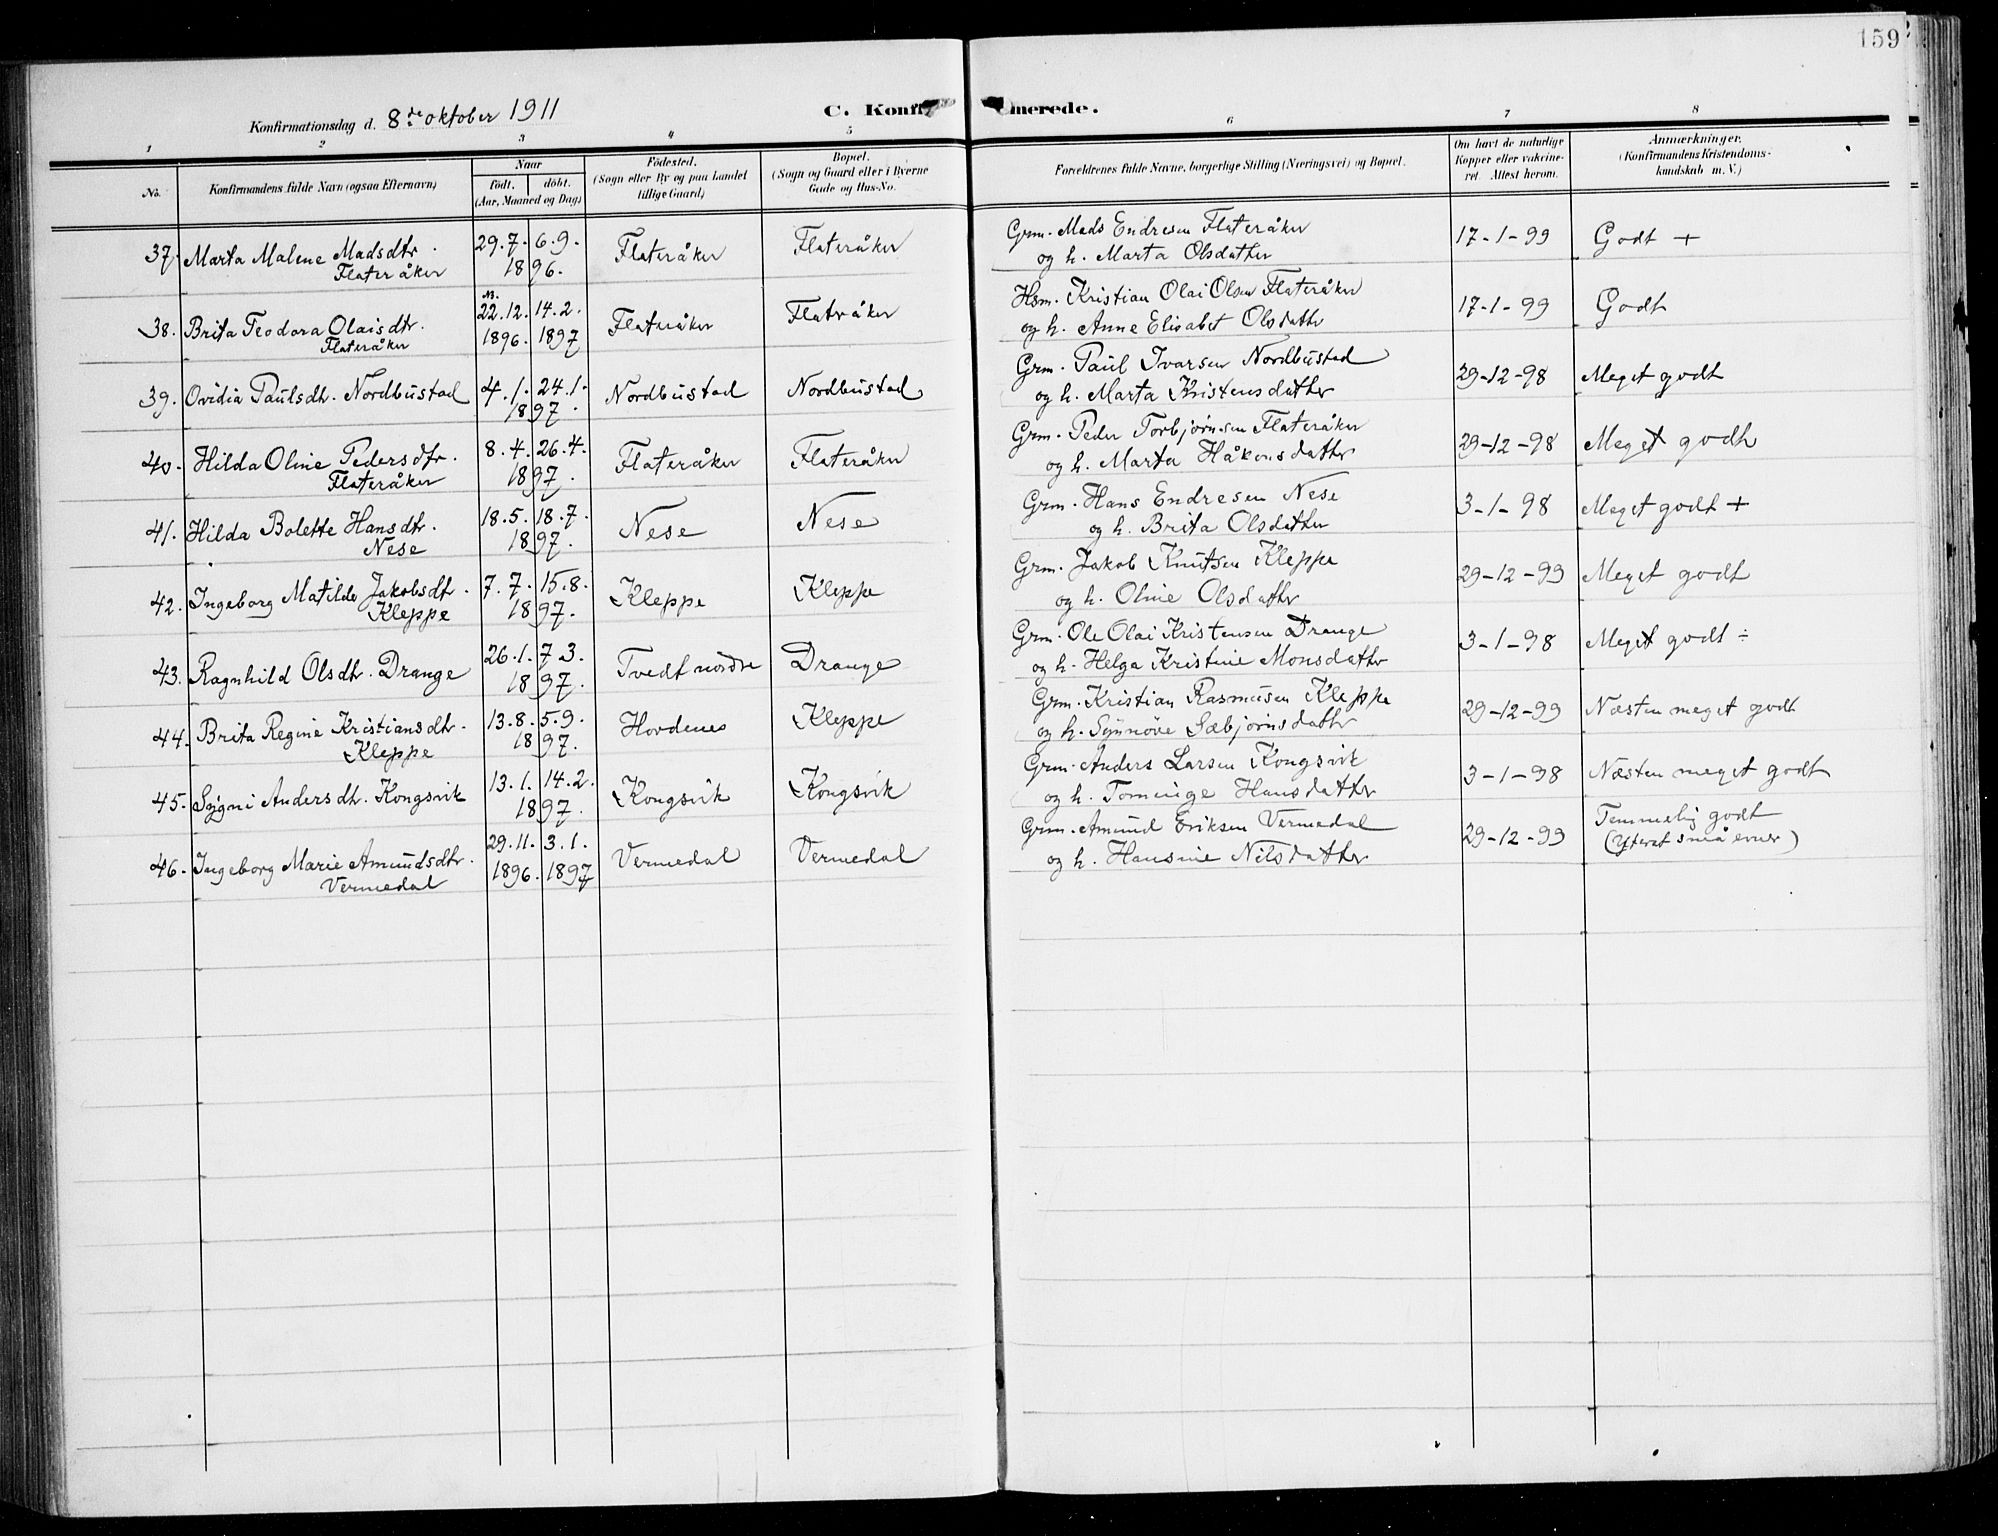 159
Konfirmationsdag d. 8de oktober 1911 C. Konfirmerede.
1 2 3 4 5 6 7 8
No. Konfirmandens fulde Navn (ogsaa Efternavn) Naar født. døbt. (Aar, Maaned og Dag) Fødested. (Sogn eller By og paa Landet tillige Gaard) Bopæl. (Sogn og Gaard eller i Byerne Gade og Hus-No. Forældrenes fulde Navne, borgerlige Stilling (Næringsvei) og Bopæl. Om havt de naturlige Kopper eller vakcineret. Attest herom. Anmærkninger. (Konfirmandens Kristendomskundskab m. V.)
37. Marta Malene Madsdtr. 29.7. 6.9. Flateråker Flateråker Grm. Mads Endresen Flateråker 17-1-99 Godt +
Flateråker 1896. og h. Marta Olsdatter
38. Brita Teodora Olaisdtr. NB. 22.12. 14.2. Flateråker Flatråker Hsm. Kristian Olai Olsen Flateråker 17-1-99 Godt
Flateråker 1896. 1897 og h. Anne Elisabet Olsdatter
39. Ovidia Paulsdtr. Nordbustad 4.1. 24.1. Nordbustad Nordbustad Grm. Paul Ivarsen Nordbustad 29-12-98 Meget godt
1897. og h. Marta Kristensdatter
40. Hilda Oline Pedersdtr. 8.4. 26.4. Flateråker Flateråker Grm. Peder Torbjørnsen Flateråker 29-12-98 Meget godt
Flateråker 1897. og h. Marta Håkonsdatter
41. Hilda Bolette Hansdtr. 18.5. 18.7. Nese Nese Grm. Hans Endresen Nese 3-1-98 Meget godt +
Nese 1897. og h. Brita Olsdatter
42. Ingeborg Matilde Jakobsdtr. 7.7. 15.8. Kleppe Kleppe Grm. Jakob Knutsen Kleppe 29-12-99 Meget godt
Kleppe 1897. og h. Oline Olsdatter
43. Ragnhild Olsdtr. Drange 26.1. 7.3. Tvedt nordre Drange Grm. Ole Olai Kristensen Drange 3-1-98 Meget godt ÷
1897. og h. Helga Kristine Monsdatter
44. Brita Regine Kristiansdtr. 13.8. 5.9. Hovdenes Kleppe Grm. Kristian Rasmusen Kleppe 29-12-99 Næsten meget godt
Kleppe 1897. og h. Synnøve Sæbjørnsdatter
45. Sygni Andersdtr. Kongsvik 13.1. 14.2. Kongsvik Kongsvik Grm. Anders Larsen Kongsvik 3-1-98 Næsten meget godt
1897. og h. Tominge Hansdatter
46. Ingeborg Marie Amundsdtr. 29.11. 3.1. Vermedal Vermedal Grm. Amund Eriksen Vermedal 29-12-99 Temmelig godt
Vermedal 1896. 1897 og h. Hansine Nilsdatter (Yterst små evner)